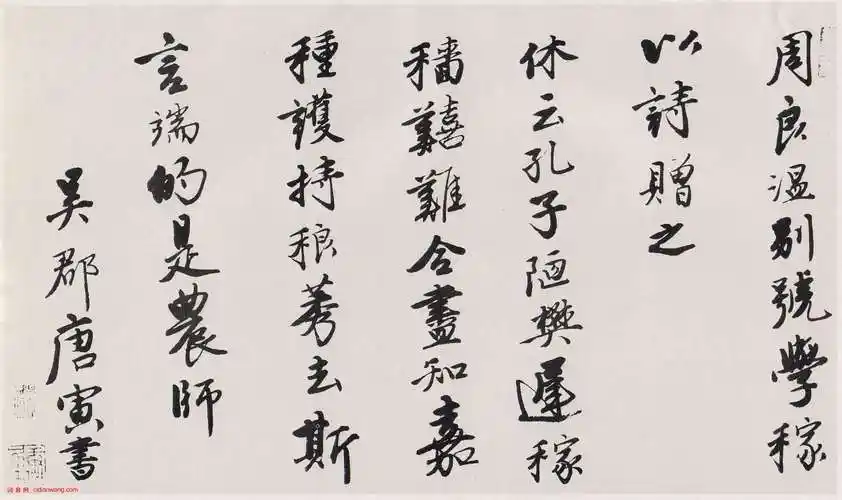 周良温別號學稼
以詩贈之
休云孔子陋樊遲稼
穡囏難合盡知嘉
種護持稂莠去斯
言端的是農師
吳郡唐寅書
cidianwang.com